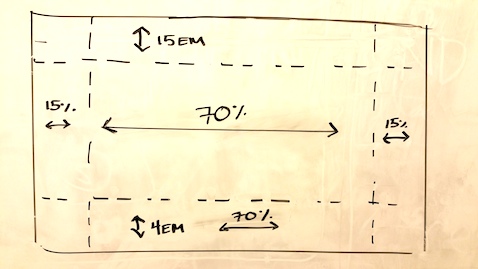 15EM
15%
70%
15%
4EM
70%